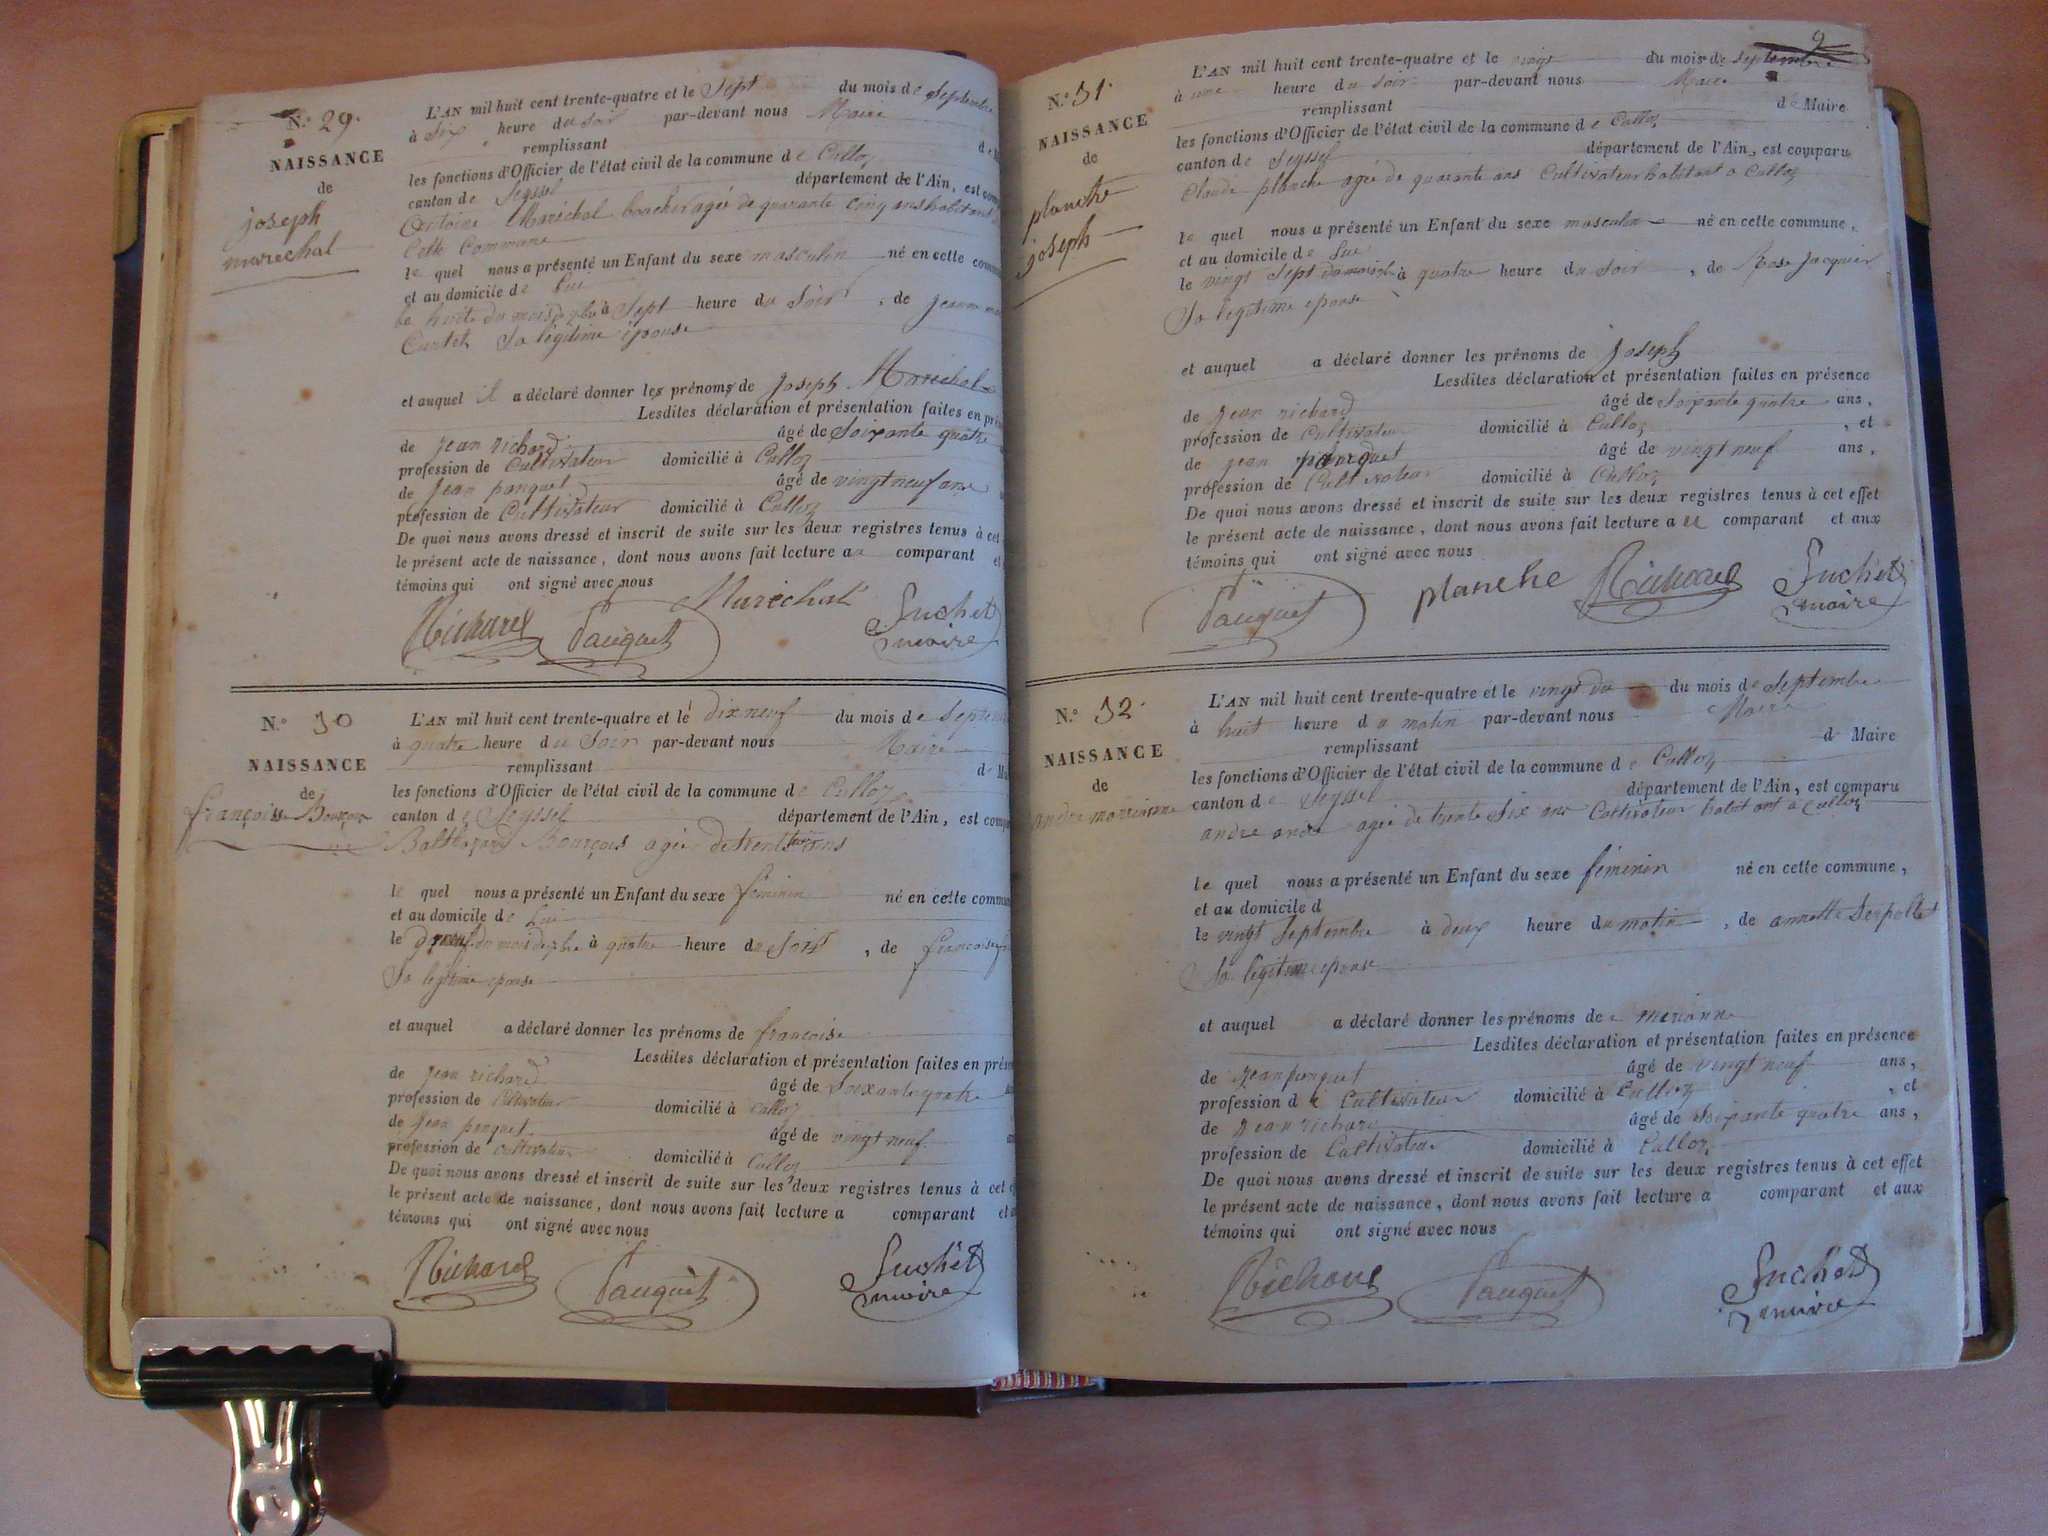 N.º 29.
NAISSANCE
de
joseph
marechal
L'AN mil huit cent trente-quatre et le Sept du mois de Septembre
à Six heure du Soir par-devant nous Maire
remplissant
les fonctions d'Officier de l'état civil de la commune de Culloz
canton de Seyssel département de l'Ain, est
Antoine Maréchal boucher agée de quarante cinq ans habitant
Cette Commune
le quel nous a présenté un Enfant du sexe masculin né en cette
et au domicile de lui
le huit du mois de 7bre à Sept heure du Soir, de jeanne
Sa légitime épouse
et auquel il a déclaré donner les prénoms de joseph Maréchal
Lesdites déclaration et présentation faites en
de jean richard âgé de Soixante quatre
profession de Cultivateur domicilié à Culloz
de jean panquet âgé de vingt neuf ans
profession de Cultivateur domicilié à Culloz
De quoi nous avons dressé et inscrit de suite sur les deux registres tenus à cet
le présent acte de naissance, dont nous avons fait lecture au comparant et
témoins qui ont signé avec nous
Maréchal
Richard Pauquet Suchet
maire
N.º 30
NAISSANCE
de
françoise Bourçois
L'AN mil huit cent trente-quatre et le dix neuf du mois de Septembre
à quatre heure du Soir par-devant nous Maire
remplissant de
les fonctions d'Officier de l'état civil de la commune de Culloz
canton de Seyssel département de l'Ain, est
Balthazard Bourçois agée de trente ans
le quel nous a présenté un Enfant du sexe féminin né en cette
et au domicile de lui
le du mois de 7bre à quatre heure du Soir, de françoise
Sa légitime epouse
et auquel a déclaré donner les prénoms de françoise
Lesdites déclaration et présentation faites en
de jean richard âgé de Soixante quatre
profession de Cultivateur domicilié à Culloz
de jean panquet âgé de vingt neuf
profession de cultivateur domicilié à Culloz
De quoi nous avons dressé et inscrit de suite sur les deux registres tenus à cet
le présent acte de naissance, dont nous avons fait lecture a comparant et
témoins qui ont signé avec nous
Richard Pauquet Suchet
maire
9
N.º 31.
NAISSANCE
de
planche
joseph
L'AN mil huit cent trente-quatre et le vingt du mois de septembre
à une heure du soir par-devant nous Maire
remplissant de Maire
les fonctions d'Officier de l'état civil de la commune de Culloz
canton de Seyssel département de l'Ain, est comparu
Claude planche agée de quarante ans Cultivateur habitant a Culloz
le quel nous a présenté un Enfant du sexe masculin né en cette commune,
et au domicile de lui
le vingt Sept du mois à quatre heure du Soir, de Rose jacquier
Sa légitime epouse
et auquel a déclaré donner les prénoms de joseph
Lesdites déclaration et présentation faites en présence
de jean richard âgé de Soixante quatre ans,
profession de Cultivateur domicilié à Culloz, et
de jean panquet âgé de vingt neuf ans,
profession de Cultivateur domicilié à Culloz
De quoi nous avons dressé et inscrit de suite sur les deux registres tenus à cet effet
le présent acte de naissance, dont nous avons fait lecture a comparant et aux
témoins qui ont signé avec nous
Pauquet planche Richard Suchet
maire
N.º 32.
NAISSANCE
de
andre marrianne
L'AN mil huit cent trente-quatre et le vingt du mois de Septembre
à huit heure du matin par-devant nous Maire
remplissant de Maire
les fonctions d'Officier de l'état civil de la commune de Culloz
canton de Seyssel département de l'Ain, est comparu
andre andré agée de trente Six ans Cultivateur habitant à Culloz
le quel nous a présenté un Enfant du sexe féminin né en cette commune,
et au domicile d
le vingt Septembre à deux heure du matin, de annette Serpollet
Sa légitime epouse
et auquel a déclaré donner les prénoms de marianne
Lesdites déclaration et présentation faites en présence
de jean panquet âgé de vingt neuf ans,
profession de Cultivateur domicilié à Culloz, et
de jean richard âgé de Soixante quatre ans,
profession de Cultivateur domicilié à Culloz
De quoi nous avons dressé et inscrit de suite sur les deux registres tenus à cet effet
le présent acte de naissance, dont nous avons fait lecture a comparant et aux
témoins qui ont signé avec nous
Richard Pauquet Suchet
maire